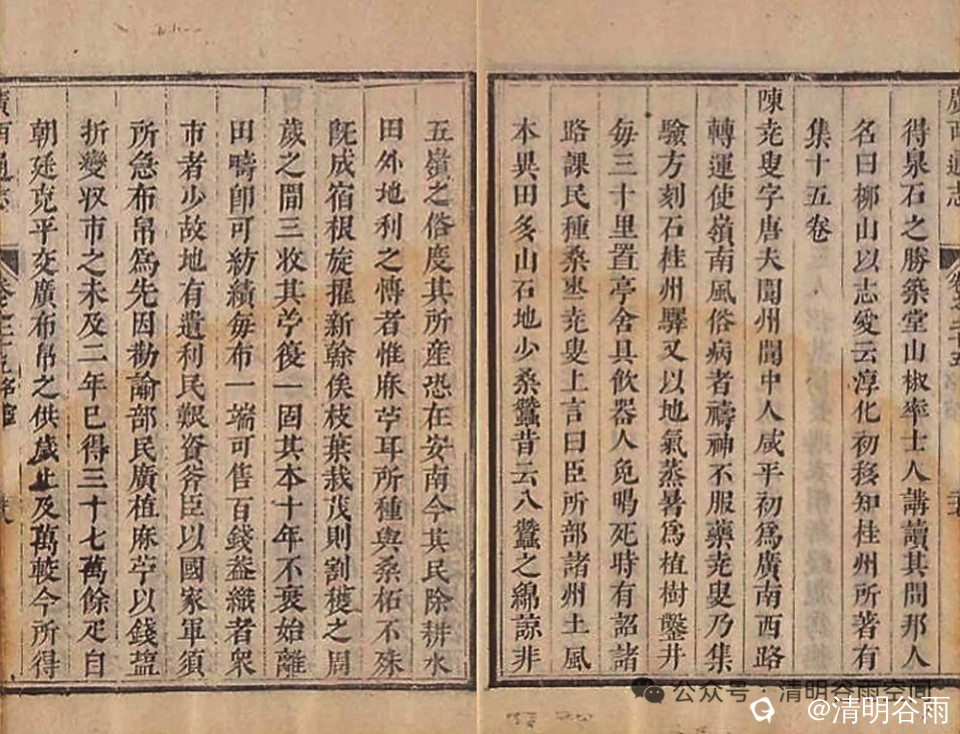 廣西通志
得泉石之勝築堂山椒率士人講讀其間郡人
名曰栁山以志愛云淳化初移知桂州所著有
集十五卷
陳堯叟字唐夫閬州閬中人咸平初爲廣南西路
轉運使嶺南風俗病者禱神不服藥堯叟乃集
驗方刻石桂州驛又以地氣蒸暑爲植樹鑿井
每三十里置亭舍具飲器人免暍死時有詔諸
路課民種桑棗堯叟上言曰臣所部諸州土風
本異田多山石地少桑蠶昔云八蠶之綿諒非
五嶺之俗度其所産恐在安南今其民除耕水
田外地利之愽者惟麻苧耳所種與桑柘不殊
旣成宿根旋擢新幹俟枝葉栽茂則割穫之周
歲之間三收其苧復一固其本十年不衰始離
田疇卽可紡績每布一端可售百錢葢織者衆
市者少故地有遺利民艱資斧臣以國家軍須
所急布帛爲先因勸諭部民廣植麻苧以錢鹽
折變収市之未及二年已得三十七萬餘疋自
朝廷克平交廣布帛之供歲止及萬較今所得
廣西通志
公众号·清明谷雨空间
@清明谷雨